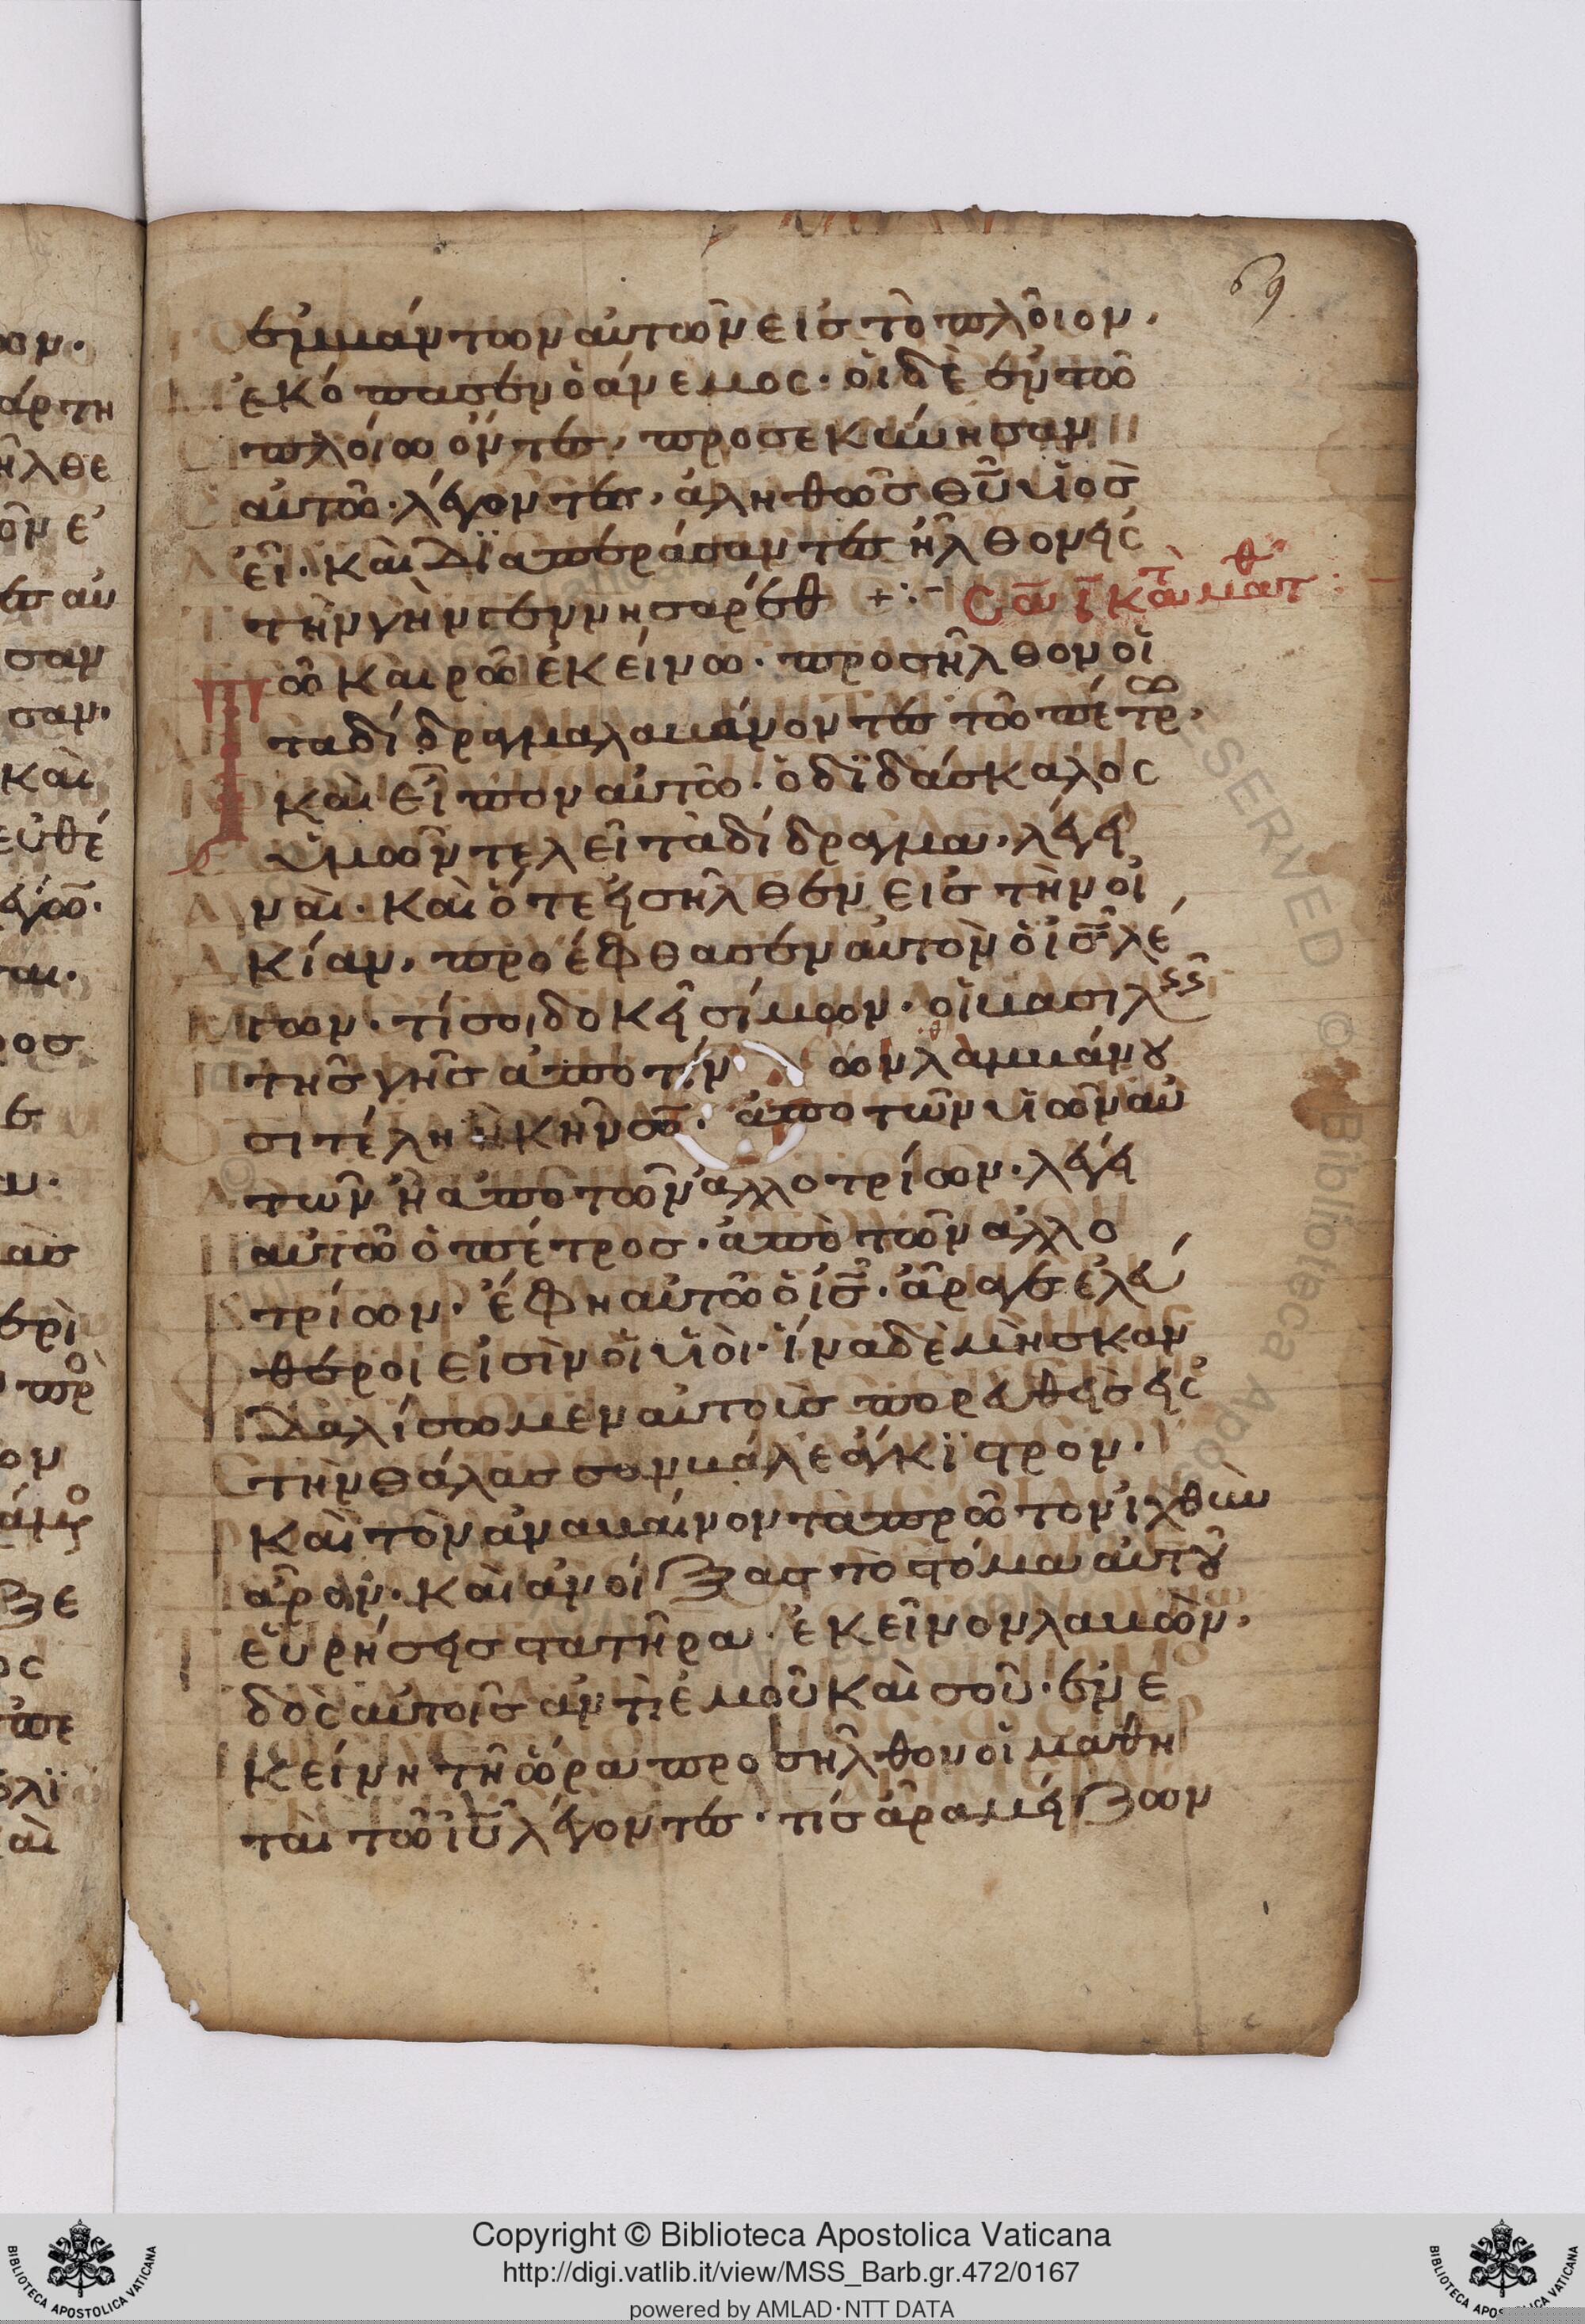 69
ἐμβάντων αὐτῶν εἰς τὸ πλοῖον.
ἐκόπασεν ὁ ἄνεμος· οἱ δὲ ἐν τῶ
πλοίω ὄντες, προσεκύνησαν
αὐτῶ· λέγοντες, ἀληθῶς θῦ υἱὸς
εἶ· καὶ διαπεράσαντες ἦλθον εἰς
τὴν γῆν γεννησαρέθ +:-
Σα ι κατὰ ματθ :
Τῶ καιρῶ ἐκείνω· προσῆλθον οἱ
τὰ δίδραγμα λαμβάνοντες τῶ πέτρω,
καὶ εἶπον αὐτῶ· ὁ διδάσκαλος
ὑμῶν τελεῖ τὰ δίδραγμα, λέγει
ναί· καὶ ὅτε εἰσῆλθεν εἰς τὴν οἰ
κίαν, προέφθασεν αὐτὸν ὁ ις λέ
γων· τί σοι δοκεῖ σίμων· οἱ βασιλεῖς
τῆς γῆς ἀπὸ τίν ων λαμβάνου
σι τέλη ἢ κῆνσον· ἀπὸ τῶν υἱῶν αὐ
τῶν ἢ ἀπὸ τῶν ἀλλοτρίων· λέγει
αὐτῶ ὁ πέτρος· ἀπὸ τῶν ἀλλο
τρίων· ἔφη αὐτῶ ὁ ις· ἄραγε ἐλεύ
θεροι εἰσὶν οἱ υἱοί· ἵνα δὲ μὴ σκαν
δαλίσωμεν αὐτοὺς πορευθεὶς εἰς
τὴν θάλασσαν βάλε ἄγκιστρον·
καὶ τὸν ἀναβαίνοντα πρῶτον ἰχθὺν
ἆρον· καὶ ἀνοίξας τὸ στόμα αὐτοῦ
εὑρήσεις στατῆρα· ἐκεῖνον λαβὼν,
δὸς αὐτοῖς ἀντὶ ἐμοῦ καὶ σοῦ· ἐν ἐ
κείνη τῆ ὥρα προσῆλθον οἱ μαθη
ταὶ τῶ ιυ λέγοντες· τίς ἄρα μείζων
Copyright © Biblioteca Apostolica Vaticana
http://digi.vatlib.it/view/MSS_Barb.gr.472/0167
powered by AMLAD·NTT DATA